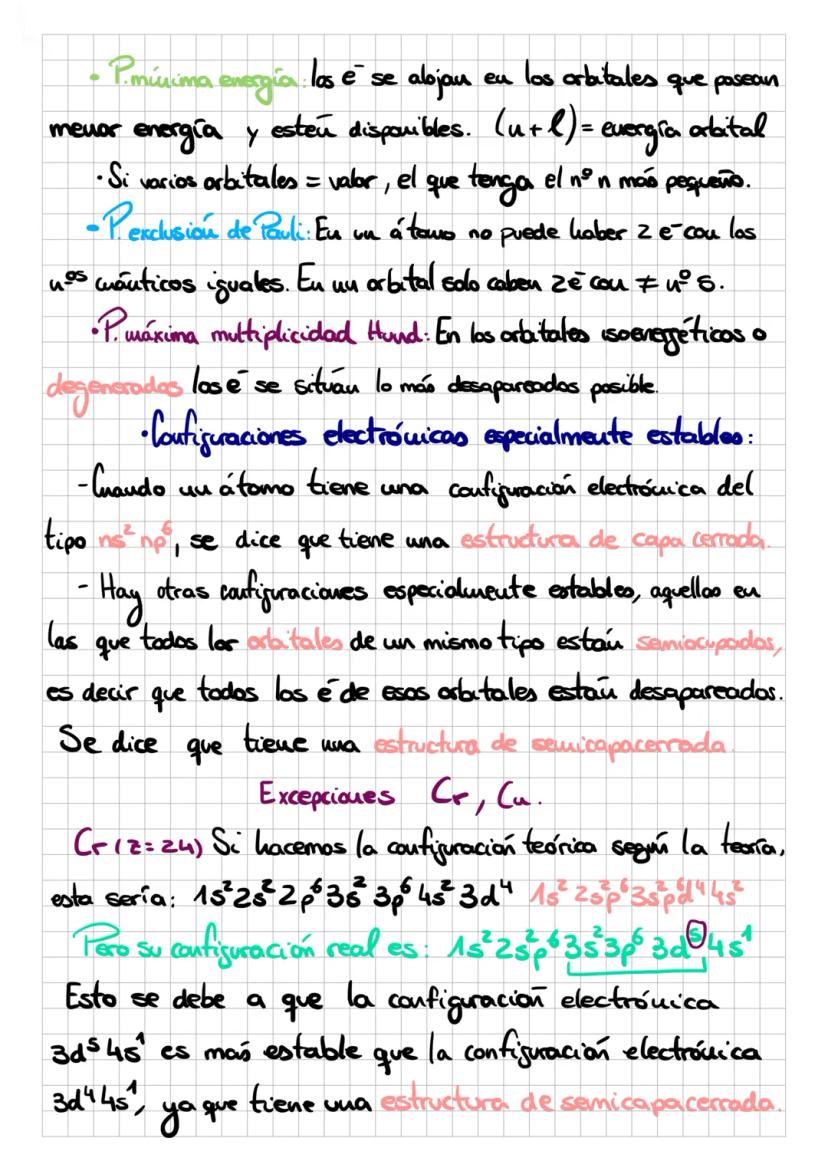 · P. mínima energía: los e⁻ se alojan en los orbitales que posean
menor energía y estén disponibles. (n+l) = energía orbital
· Si varios orbitales = valor, el que tenga el nº n más pequeño.
· P. exclusión de Pauli: En un átomo no puede haber 2 e⁻ con los
nºs cuánticos iguales. En un orbital solo caben 2e⁻ con ≠ nº s.
· P. máxima multiplicidad Hund: En los orbitales isoenergéticos o
degenerados los e⁻ se sitúan lo más desapareados posible.
· Configuraciones electrónicas especialmente estables:
- Cuando un átomo tiene una configuración electrónica del
tipo ns² np⁶, se dice que tiene una estructura de capa cerrada.
- Hay otras configuraciones especialmente estables, aquellas en
las que todos los orbitales de un mismo tipo están semiocupados,
es decir que todos los e⁻ de esos orbitales están desapareados.
Se dice que tiene una estructura de semicapacerrada.
Excepciones Cr, Cu.
Cr (z=24) Si hacemos la configuración teórica según la teoría,
esta sería: 1s² 2s² 2p⁶ 3s² 3p⁶ 4s² 3d⁴ 1s² 2s²p⁶ 3s²p⁶d⁴ 4s²
Pero su configuración real es: 1s² 2s²p⁶ 3s² 3p⁶ 3d⁵ 4s¹
Esto se debe a que la configuración electrónica
3d⁵ 4s¹ es más estable que la configuración electrónica
3d⁴ 4s¹, ya que tiene una estructura de semicapacerrada.